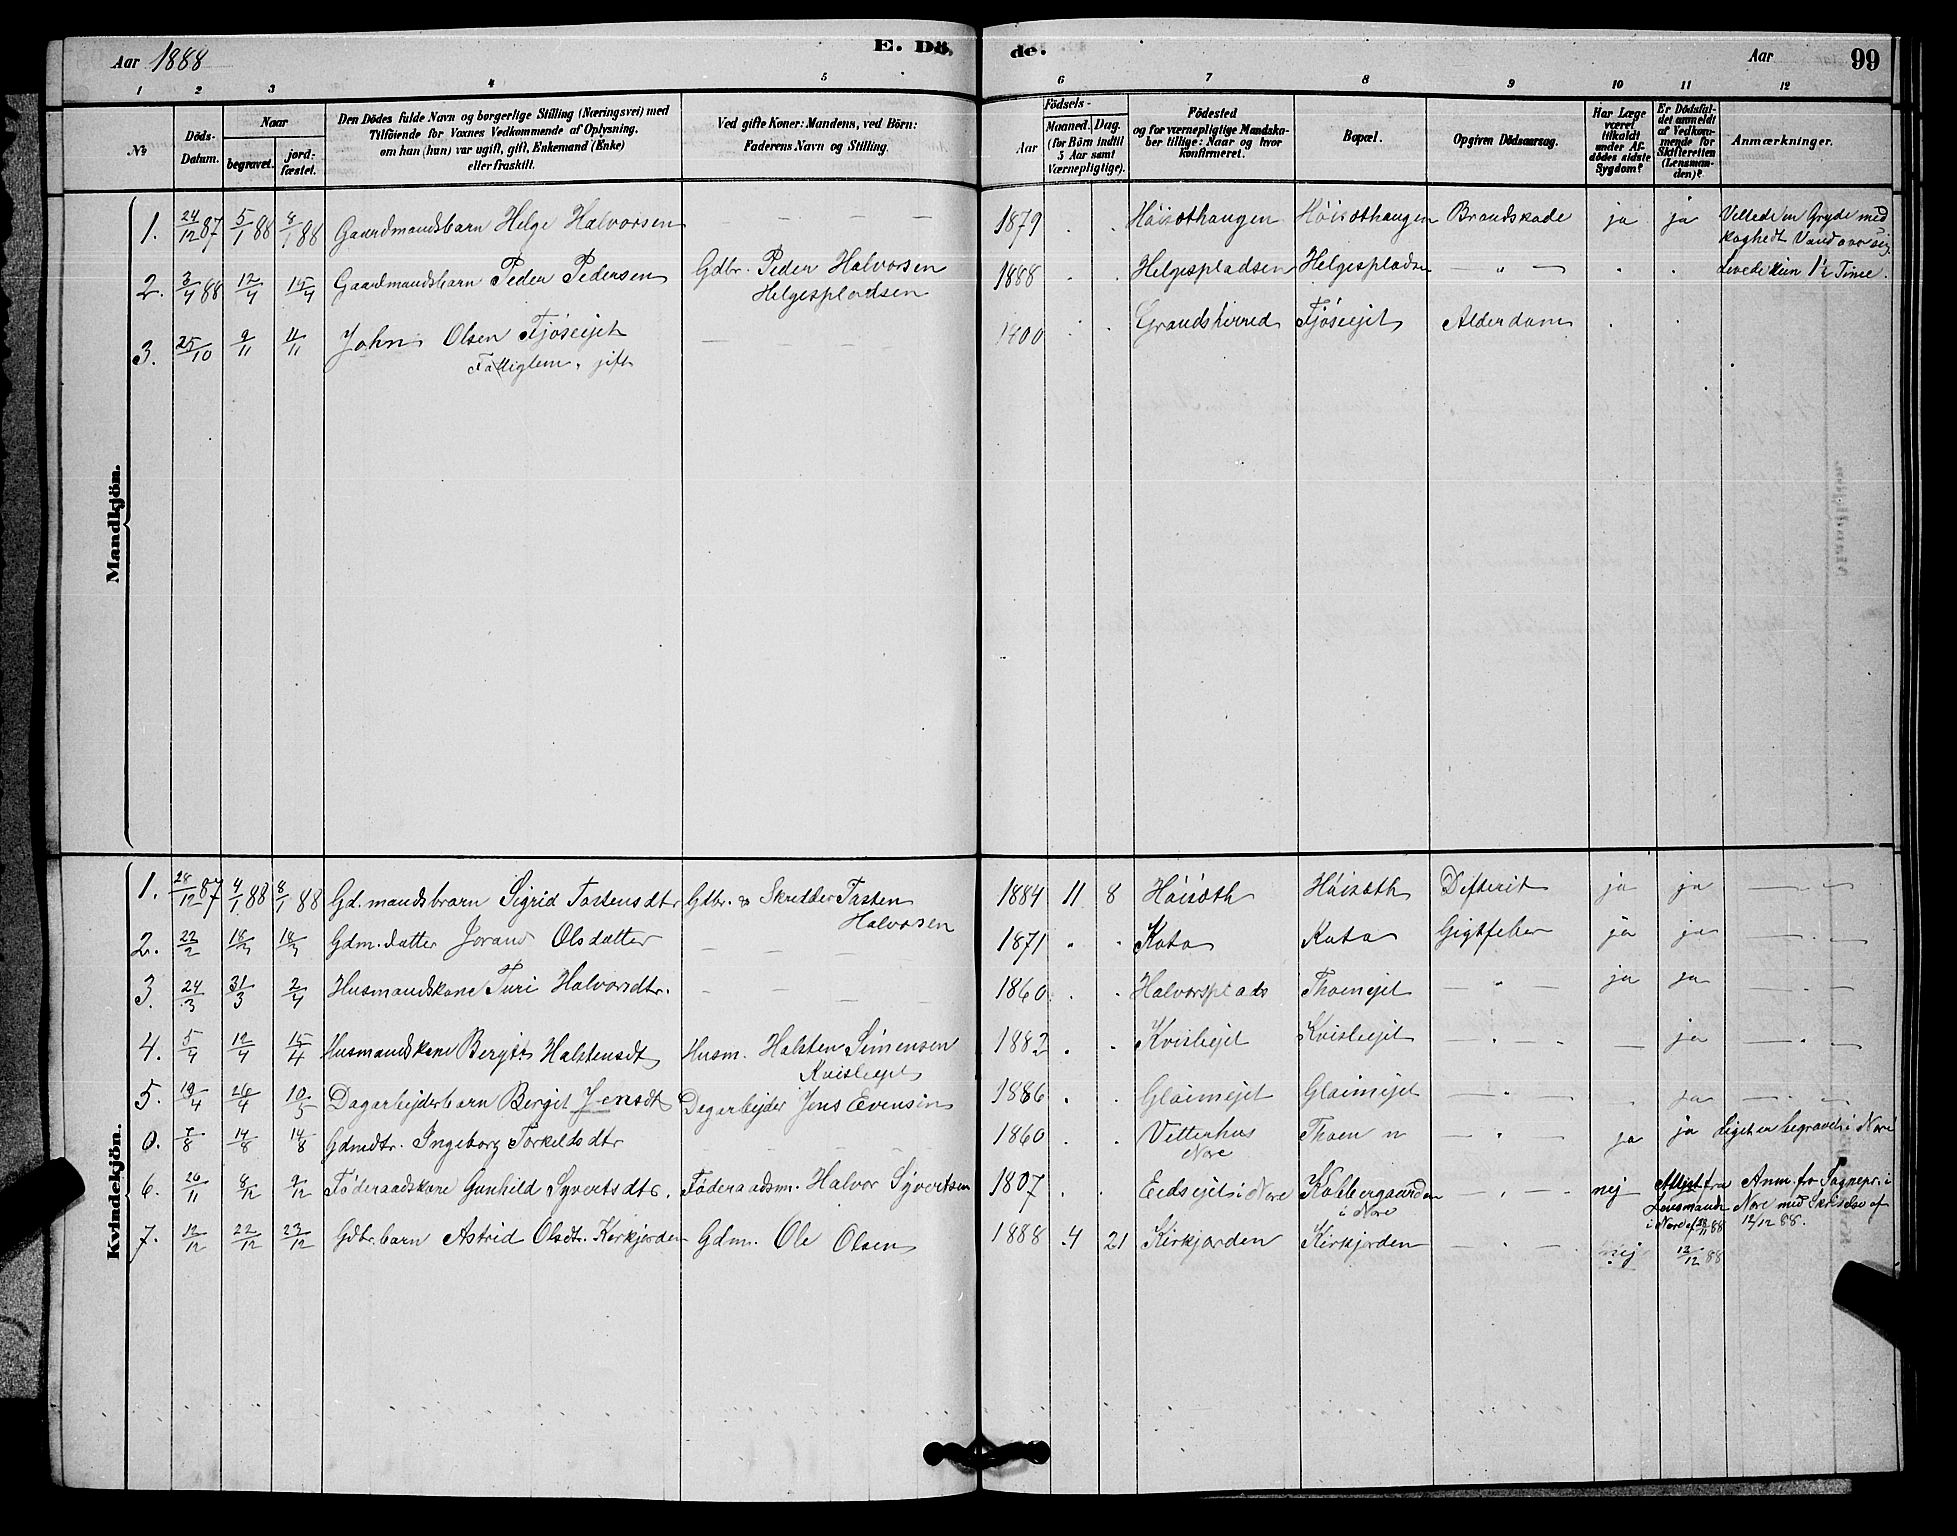 Aar 1888
E. Dö,
de.
Aar
99
1 2 3 4 5 6 7 8 9 10 11 12
№
Döds-
Datum.
Naar
begravet.
jord-
fæstet.
Den Dödes fulde Navn og borgerlige Stilling (Næringsvei) med
Tilföiende for Voxnes Vedkommende af Oplysning,
om han (hun) var ugift, gift, Enkemand (Enke)
eller fraskilt.
Ved gifte Koner: Mandens, ved Börn:
Faderens Navn og Stilling.
Födsels-
Aar
Maaned.
Dag.
(for Börn indtil
5 Aar samt
Værnepligtige).
Födested
og for værnepligtige Mandska-
ber tillige: Naar og hvor
konfirmeret.
Bopæl.
Opgiven Dödsaarsag.
Har Læge
været
tilkaldt
under Af-
dödes sidste
Sygdom?
Er Dödsfal-
det anmeldt
af Vedkom-
mende for
Skifteretten
(Lensman-
den)?
Anmærkninger.
Mandkjön.
1. 24/12 87 5/1 88 8/1 88 Gaardmandsbarn Helge Halvorsen — — — — 1879 . . Höisæthaugen Höisæthaugen Brandskade ja ja Veltede en Gryde med
koghedt Vand over sig.
Levede kun 1½ Time.
2. 3/4 88 12/4 15/4 Gaardmandsbarn Peder Pedersen Gdbr. Peder Halvorsen 1888 . . Helgespladsen Helgespladsen — " — . .
Helgespladsen
3. 25/10 9/11 11/11 John Olsen Fjöseiet — — — — 1800 . . Grandsherred Fjöseiet Alderdom . .
Fattiglem. gift
Kvindekjön.
1. 28/12 87 4/1 88 8/1 88 Gd.mandsbarn Sigrid Tostensdtr Gdbr. & Skrædder Tosten 1884 11 8 Höisæth Höisæth Difterit ja ja — " —
Halvorsen
2. 22/2 18/3 18/3 Gdm.datter Jorand Olsdatter — — — 1871 " " Kata Kata Gigtfeber ja ja — . —
3. 24/3 31/3 2/4 Husmandskone Turi Halvorsdtr. — — — 1860 . . Halvorsplads Thoeneiet — " — ja ja — . —
4. 5/4 12/4 15/4 Husmandskone Bergit Halstensdt Husm. Halsten Simensen 1882 . . Kvisleeiet Kvisleeiet — . — — ja — " —
Kvisleeiet
5. 19/4 26/4 10/5 Dagarbejderbarn Bergit Jensdt Dagarbejder Jens Evensen 1886 . . Gloimeiet Gloimeiet — " — . ja — . —
0. 7/8 14/8 14/8 Gdmdtr. Ingeborg Torkeldsdtr — — — 1860 . . Vetterhus Thoen n — " — ja ja Liget er begravet i Nore
Nore
6. 26/11 8/12 9/12 Föderaadskone Gunhild Syvertsdtr. Föderaadsm. Halvor Syvertsen 1807 . . Eidseiet i Nore Kobbergaarden — " — nej Attest fra Anm. fr. Sognepr. i
i Nore Lensmand Nore med Skrivelse af
i Nore af 28/11 88 12/12 88.
7. 12/12 22/12 23/12 Gdbr.barn Astrid Olsdt. Kirkjorden Gdm. Ole Olsen 1888 4 21 Kirkjorden Kirkjorden — . — nej 12/12 88